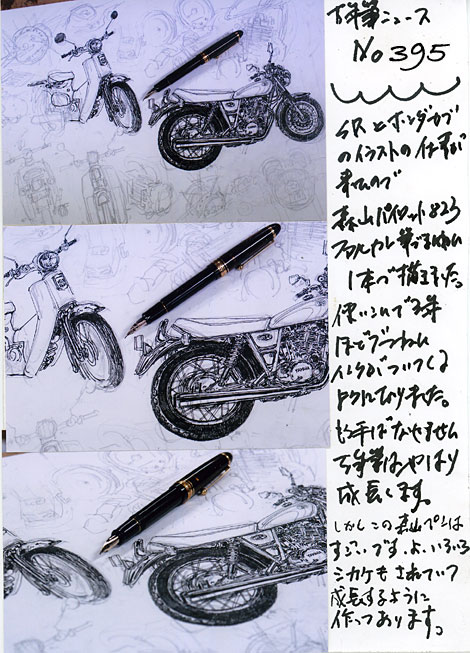 万年筆ニュース
No 395
SRとホンダカブ
のイラストの仕事が
来たので
森山パイロット823
フォルカン
1本で描きました。
使いこんで2年
ほど
インクがついてくる
ようになりました。
もう手ばなせません
万年筆はやはり
成長します。
しかしこの森山ペンは
すごいですよ、いろいろ
シカケもされていて
成長するように
作ってあります。